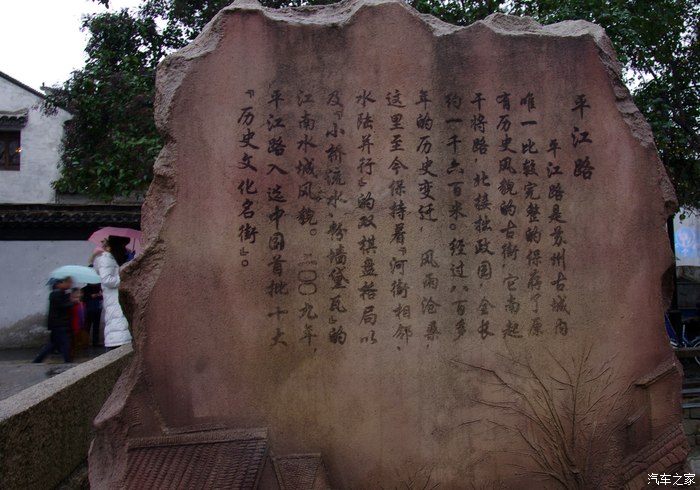 平江路
平江路是苏州古城内
唯一比较完整的保存了原
有历史风貌的古街，它南起
干将路，北接拙政园，全长
约一千六百米。经过八百多
年的历史变迁，风雨沧桑
这里至今保持着『河街相邻、
水陆并行』的双棋盘格局以
及『小桥流水、粉墙黛瓦』的
江南水城风貌。二〇〇九年，
平江路入选中国首批十大
『历史文化名街』。
汽车之家